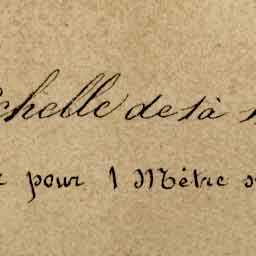 chelle de 1 à
pour 1 Mètre